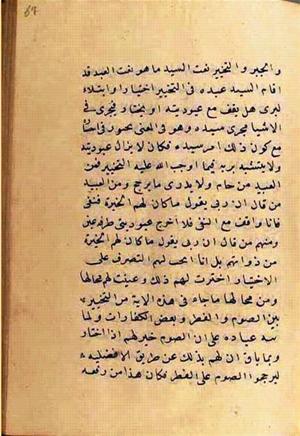 والجبر والتخيير نعت السيد ما هو نعت العبد قد
اقام السيد عبده في التخيير اختبارا وابتلاء
ليرى هل يقف مع عبوديته او يختار فيجري في
الاشيا مجرى سيده وهو في المعنى مجبور في اختياره
مع كون ذلك امر سيده فكان لا يزال عبوديته
ولا يتشبه بربه فيما اوجب الله عليه التخيير فمن
العبيد من حام ولا يدري ما يرجح ومن العبيد
من قال ان ربي يقول ما كان لهم الخيرة فنفى
فانا واقف مع النفي فلا اخرج عبوديتي طرفة عين
ومنهم من قال ان ربي يقول ما كان لهم الخيرة
من ذواتهم بل انا لهم التصرف على
الاختيار اخترت لهم ذلك وعينت لهم محالها
ومن محالها ما جاء في هذه الاية من التخيير
بين الصوم والفطر وبعض الكفارات ولما
نبه عباده على ان الصوم خير لهم اذا اختاروا
وبما بان لهم بذلك عن طريق الافضلية
ليرجحوا الصوم على الفطر فكان هذا من رفقه